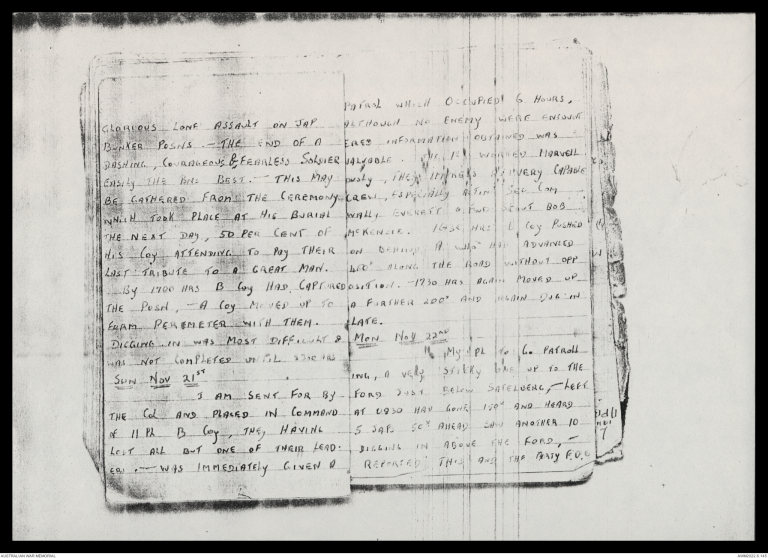 GLORIOUS LONE ASSAULT ON JAP
BUNKER POSNS — THE END OF A
DASHING, COURAGEOUS & FEARLESS SOLDIER
EASILY THE BNS BEST. — THIS MAY
BE GATHERED FROM THE CEREMONY
WHICH TOOK PLACE AT HIS BURIAL
THE NEXT DAY, 50 PER CENT OF
HIS COY ATTENDING TO PAY THEIR
LAST TRIBUTE TO A GREAT MAN.
BY 1700 HRS B COY HAD CAPTURED
THE POSN, — A COY MOVED UP TO
FORM PERIMETER WITH THEM.
DIGGING IN WAS MOST DIFFICULT &
WAS NOT COMPLETED UNTIL HRS
SUN NOV 21ST
I AM SENT FOR BY
THE COL AND PLACED IN COMMAND
OF 11 PL B COY, THEY HAVING
LOST ALL BUT ONE OF THEIR LEAD-
ERS. — WAS IMMEDIATELY GIVEN A
PATROL WHICH OCCUPIED 6 HOURS,
ALTHOUGH NO ENEMY WERE ENCOUNT
ERED INFORMATION OBTAINED WAS
VALUABLE. 11 PL WORKED MARVELL
OUSLY, THEY IMPRESS A VERY CAPABLE
CREW, ESPECIALLY ACTING SEC COM
WALLY EVERETT SCOUT BOB
MCKENZIE. HRS COY PUSHED
ON BEHIND A WHO HAD ADVANCED
ALONG THE ROAD WITHOUT OPP
OSITION. — 1730 HRS AGAIN MOVED UP
A FURTHER 200X AND AGAIN DUG IN
LATE.
MON NOV 22ND
MY PL TO GO PATROLL
ING, A VERY STICKY ONE UP TO THE
FORD JUST BELOW SATELBERG, — LEFT
AT 0830 HAD GONE 150X AND HEARD
5 JAPS 50X AHEAD SAW ANOTHER 10
DIGGING IN ABOVE THE FORD, —
REPORTED THIS AND THE ARTY F.O.O
AUSTRALIAN WAR MEMORIAL